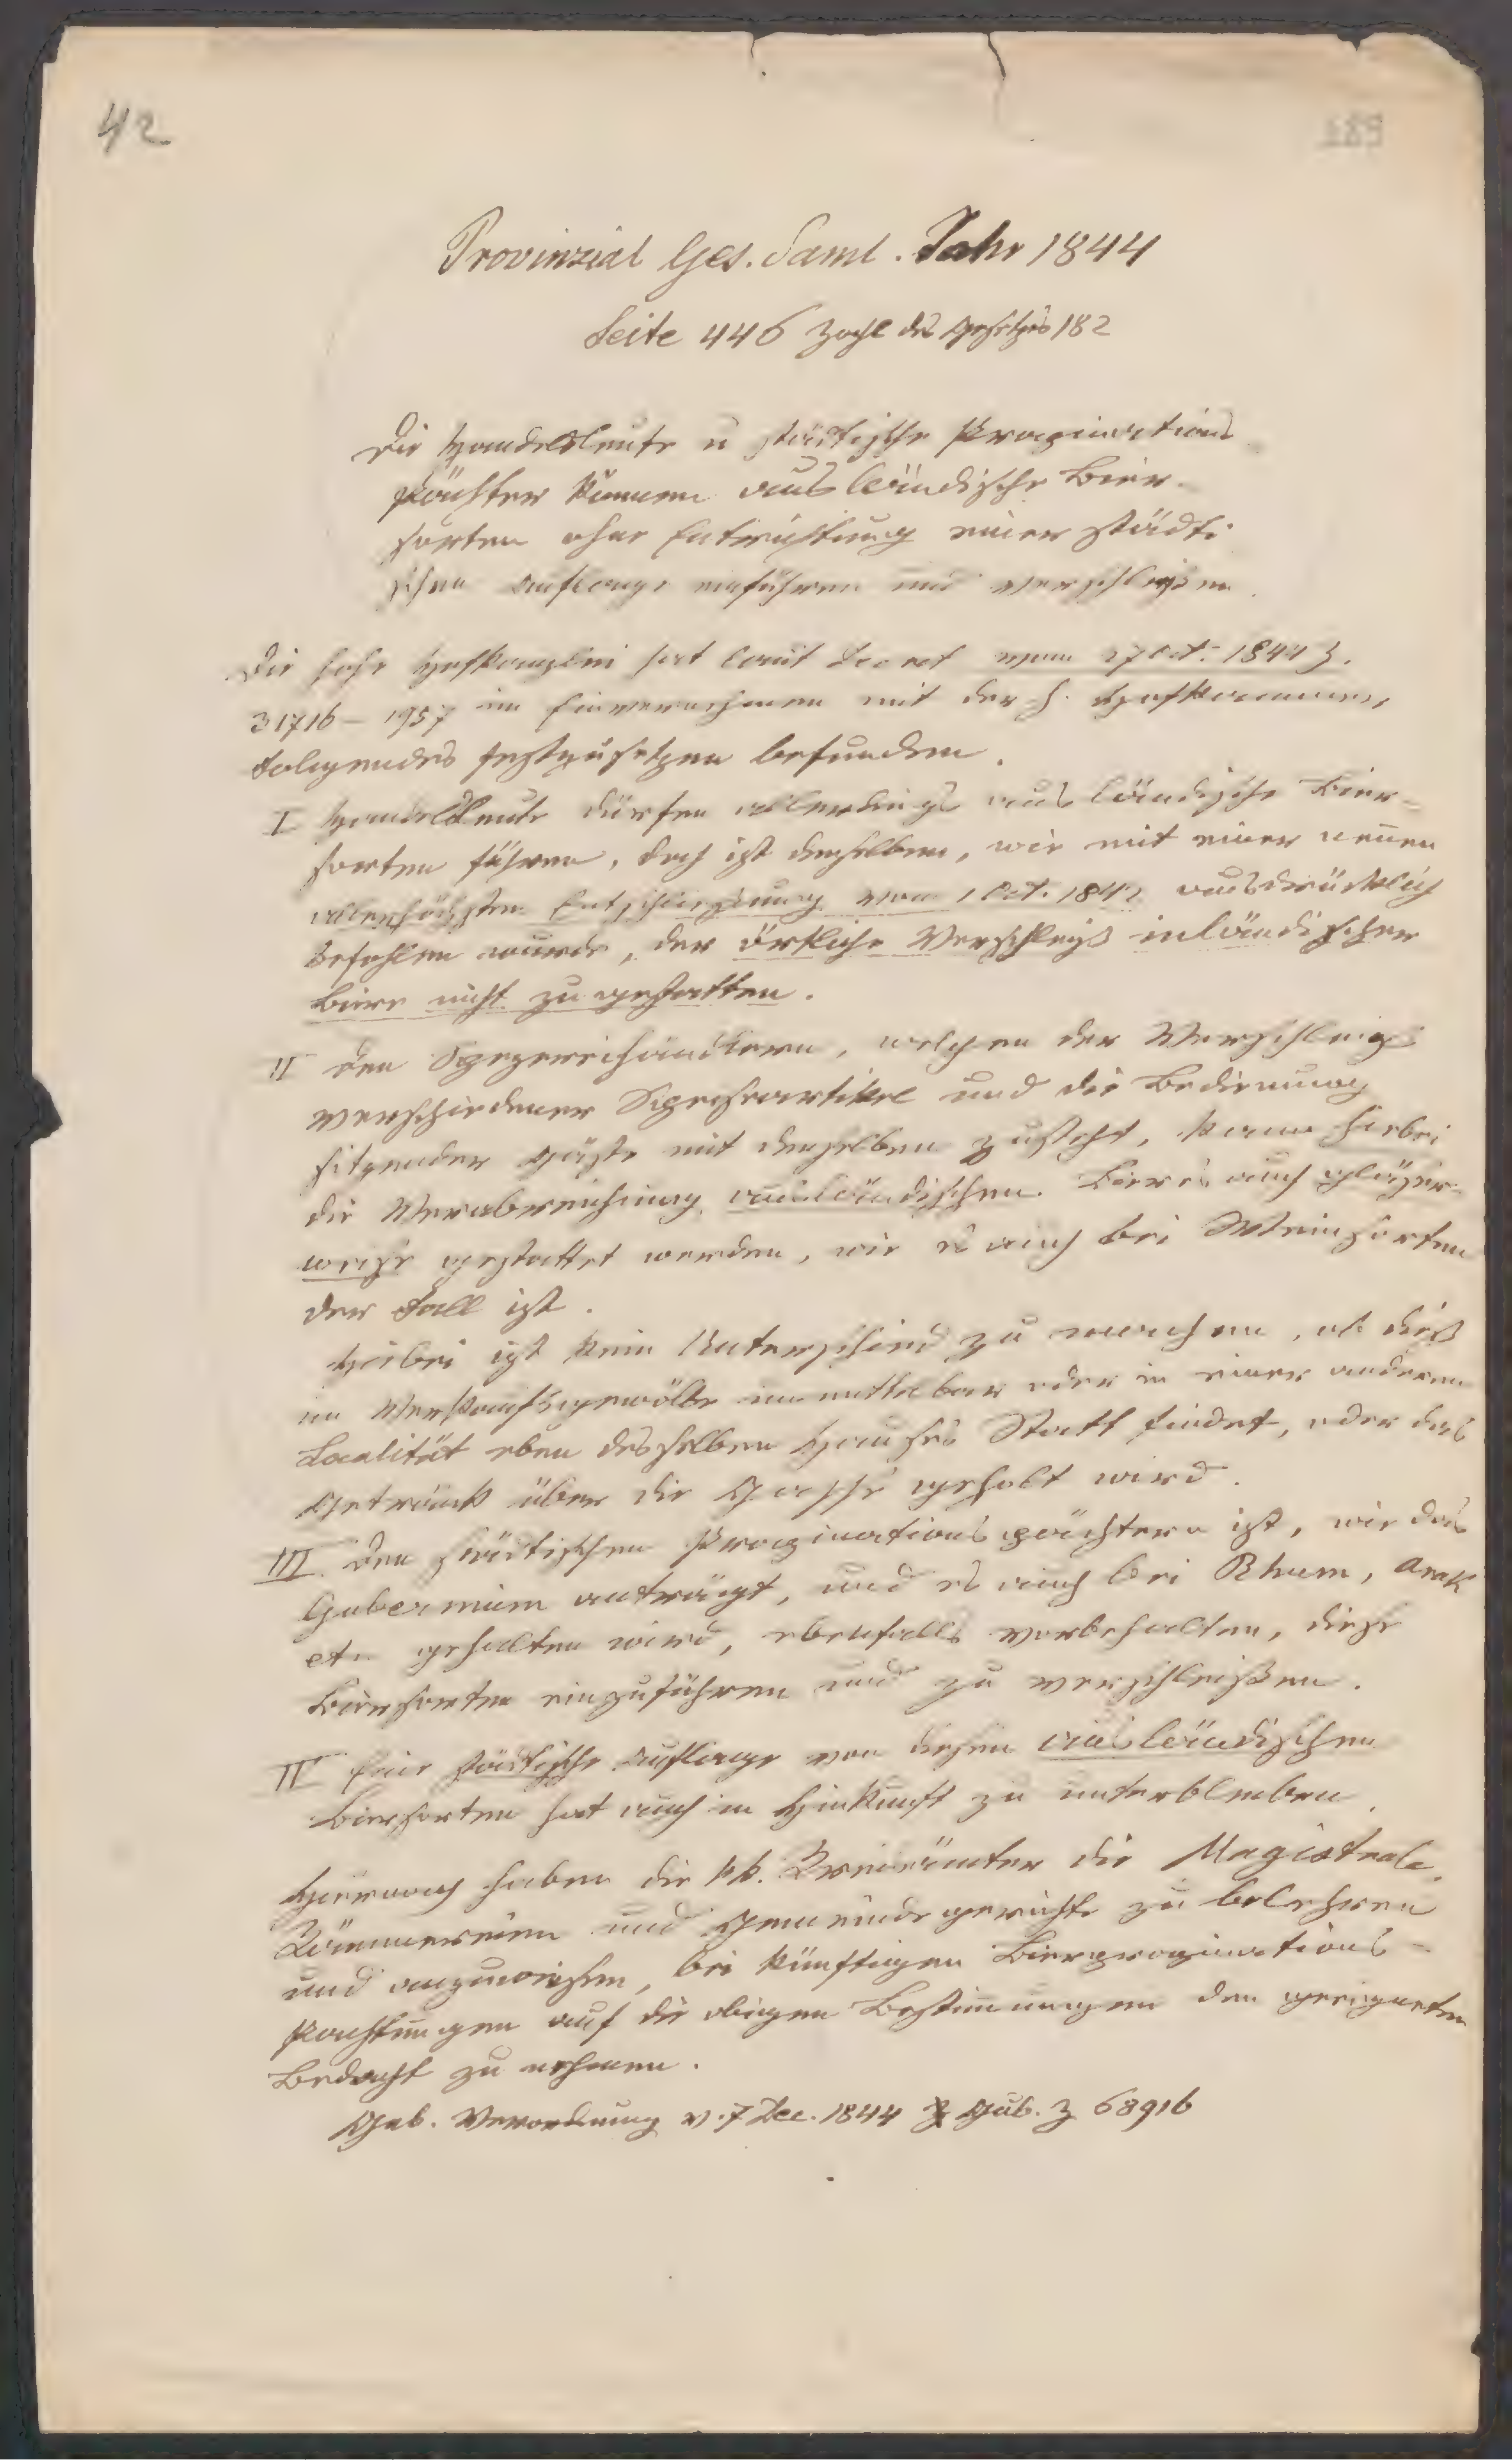 42
189
Provinzial Ges. Saml. Jahr 1844
Seite 446 Zahl des Gesetzes 182
Die Handelsleute u städtische Propinations
pächter können ausländische Bier-
sorten ohne Entrichtung einer städti
schen Auflage einführen und verschleißen.
Die hohe Hofkanzlei hat laut Decret vom 27 Oct. 1844 Z.
31716 – 1957 im Einvernehmen mit der h. Hofkammer
Folgendes festzusetzen befunden.
I Handelsleute dürfen allerdings ausländische Bier-
sorten führen, doch ist denselben, wie mit einer neuen
allerhöchsten Entschließung vom 1 Oct. 1842 ausdrücklich
befohlen wurde, der örtliche Verschleiß inländischer
Biere nicht zu gestatten.
II Den Spezereihändlern, welchen der Verschleiß
verschiedener Speiseartikel und die Bedienung
sitzender Gäste mit denselben zusteht, kann hiebei
die Verabreichung ausländischen Bieres auch gläser-
weise gestattet werden, wie es auch bei Weinsorten
der Fall ist.
Hiebei ist kein Unterschied zu machen, ob dieß
im Verkaufsgewölbe unmittelbar oder in einer anderen
Localität eben desselben Hauses Statt findet, oder das
Getränk über die Gasse geholt wird.
III Den städtischen Propinationspächtern ist, wie das
Gubernium anträgt, und es auch bei Rhum, Arak
etc. gehalten wird, ebenfalls vorbehalten, diese
Biersorten einzuführen und zu verschleißen.
IV Eine städtische Auflage von diesen ausländischen
Biersorten hat auch in Hinkunft zu unterbleiben.
Hiernach haben die kk. Kreisämter die Magistrate,
Kämmereien und Gemeindegerichte zu belehren
und anzuweisen, bei künftigen Bierpropinations-
Pachtungen auf die obigen Bestimmungen den geeigneten
Bedacht zu nehmen.
Gub. Verordnung v. 7 Dec. 1844 Z Gub. Z 68916